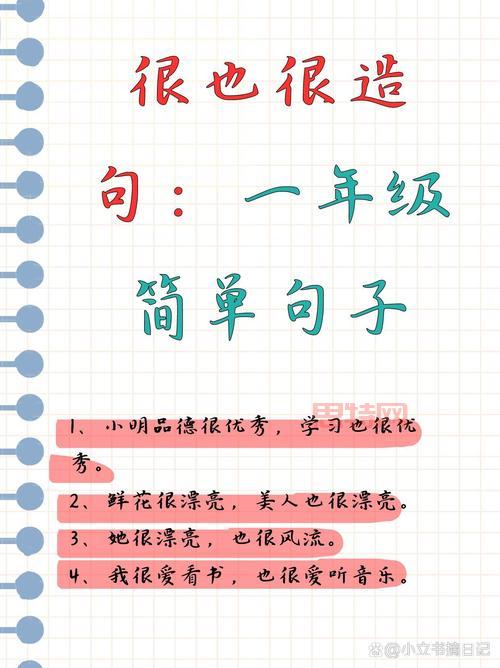 很也很造
句：一年级
简单句子
思特网
1、小明品德很优秀，学习也很优
秀。
2、鲜花很漂亮，美人也很漂亮。
3、她很漂亮，也很风流。
4、我很爱看书，也很爱听音乐。
小立书摘日记